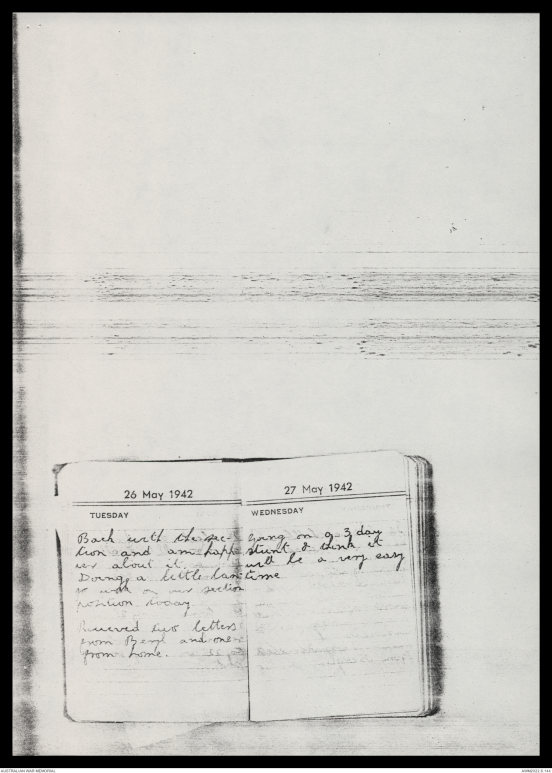 26 May 1942
TUESDAY
Back with the sec-
tion and am happ
ier about it.
Doing a little
to work on our section
position today
Recieved two letters
from Beryl and one
from home.
27 May 1942
WEDNESDAY
Going on a 3 day
stunt I think it
will be a very easy
time
AUSTRALIAN WAR MEMORIAL